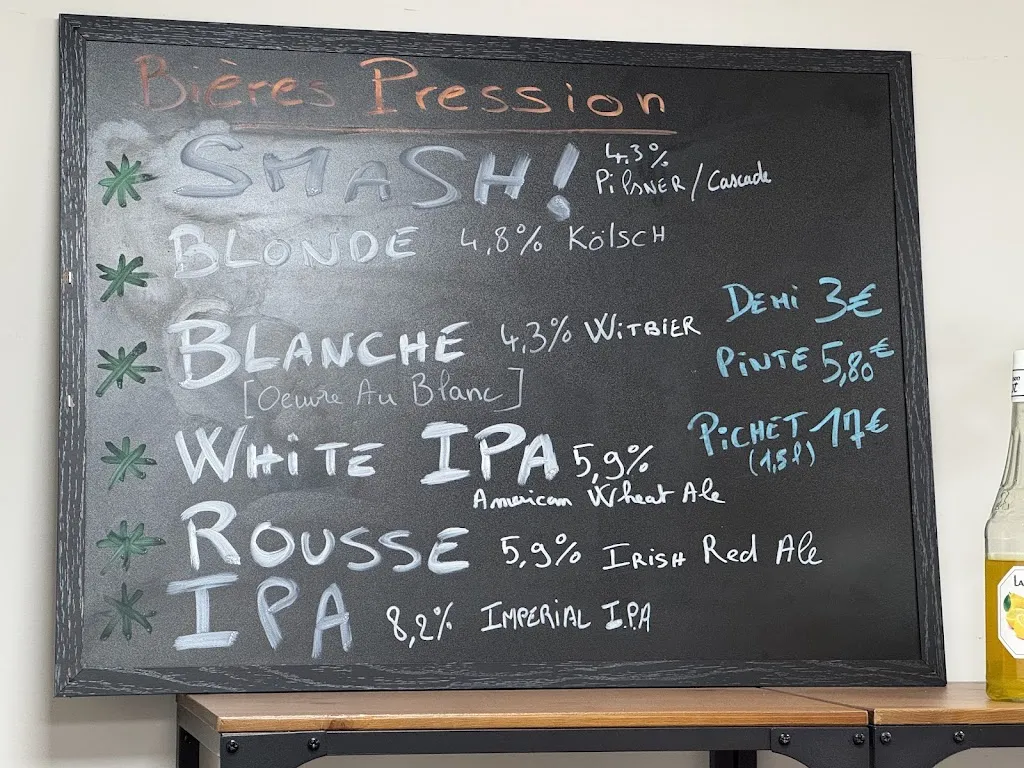 Bières Pression
SMASH! 4,3%
PilsNER / Cascade
BLONDE 4,8% KölscH
BLANCHE 4,3% WiTBIER
[Oeuvre Au Blanc]
WHiTE IPA 5,9%
American Wheat Ale
ROUSSE 5,9% IRisH Red Ale
IPA 8,2% IMPERiAL I.P.A
DEMi 3€
PiNTE 5,80€
PiCHET 17€
(1,5l)